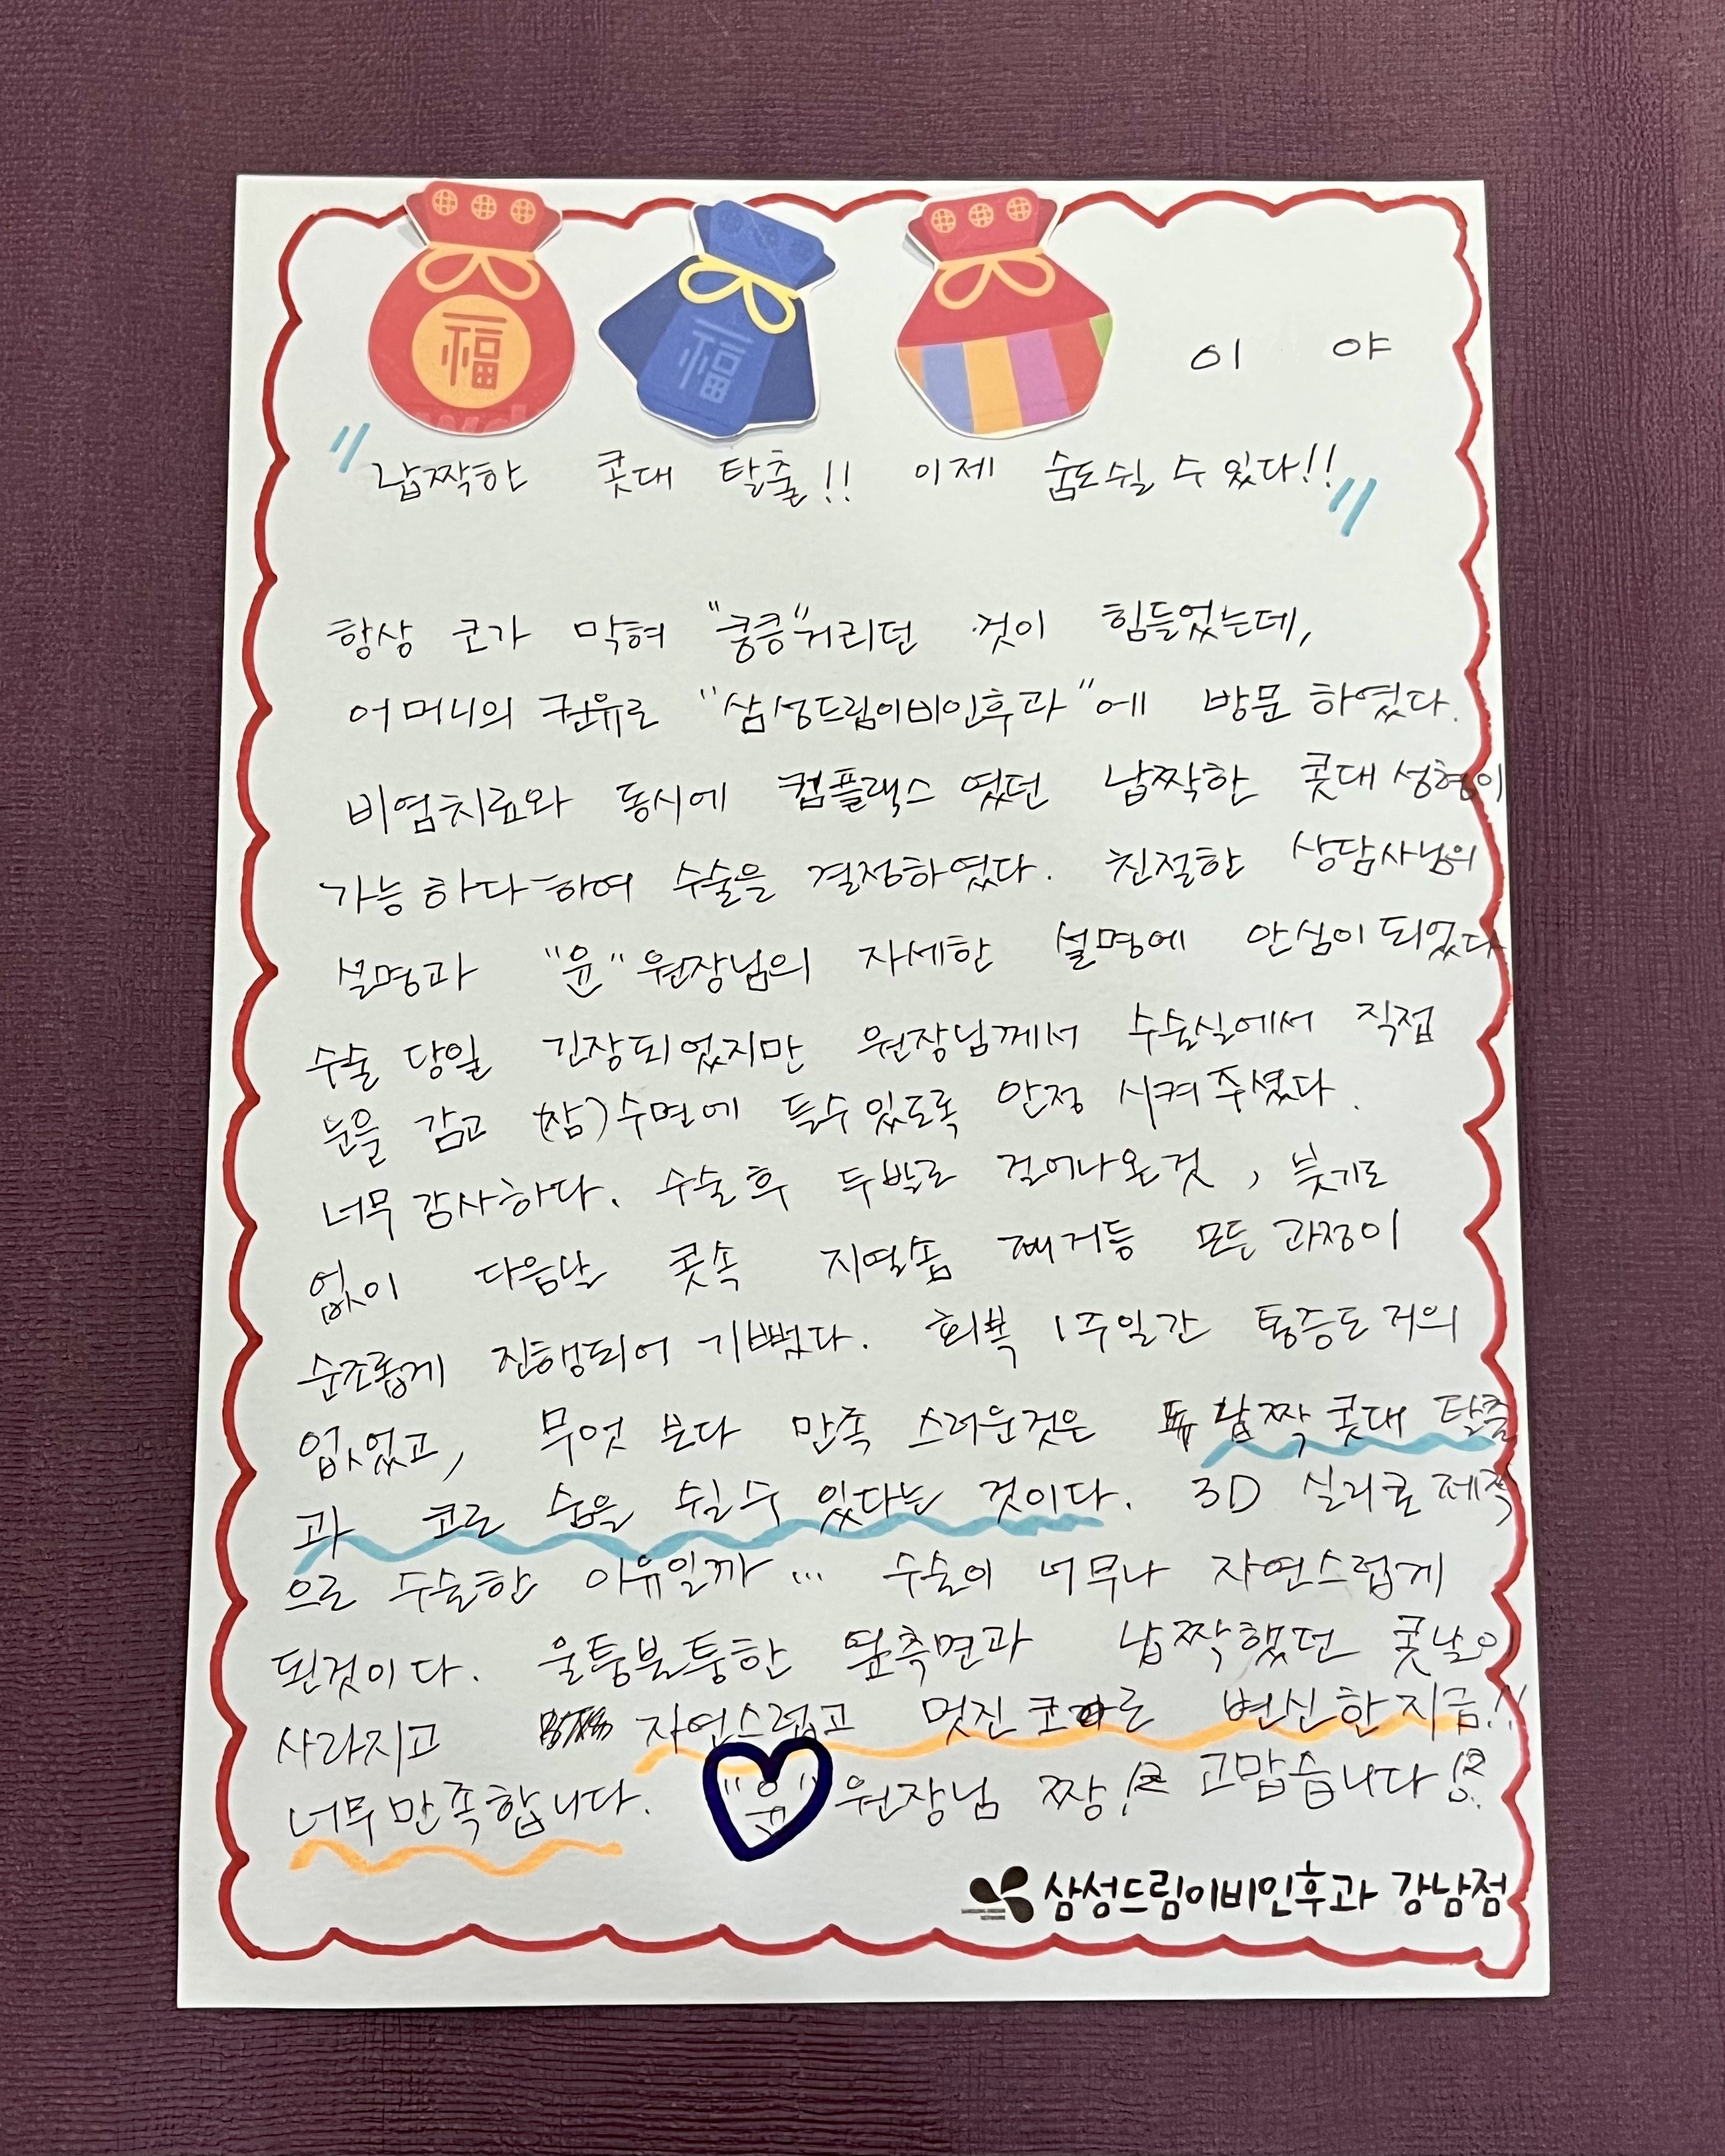 福 福
이 야
" 납짝한 콧대 탈출!! 이제 숨도쉴 수 있다!! "
항상 코가 막혀 "킁킁"거리던 것이 힘들었는데,
어머니의 권유로 "삼성드림이비인후과"에 방문 하였다.
비염치료와 동시에 컴플랙스 였던 납짝한 콧대 성형이
가능 하다 하여 수술을 결정하였다. 친절한 상담사님의
설명과 "윤" 원장님의 자세한 설명에 안심이 되었다
수술 당일 긴장되었지만 원장님께서 수술실에서 직접
눈을 감고 (잠)수면에 들수있도록 안정 시켜 주셨다.
너무 감사하다. 수술 후 두발로 걸어나온것, 붓기도
없이 다음날 콧속 지혈솜 제거등 모든 과정이
순조롭게 진행되어 기뻤다. 회복 1주일간 통증도 거의
없었고, 무엇 보다 만족 스러운것은 납짝 콧대 탈출
과 코로 숨을 쉴수 있다는 것이다. 3D 실리콘 제작
으로 수술한 이유일까... 수술이 너무나 자연스럽게
된것이다. 울퉁불퉁한 옆측면과 납짝했던 콧날이
사라지고 자연스럽고 멋진 코로 변신한 지금!!
너무 만족합니다. "윤" 원장님 짱! 고맙습니다!
삼성드림이비인후과 강남점